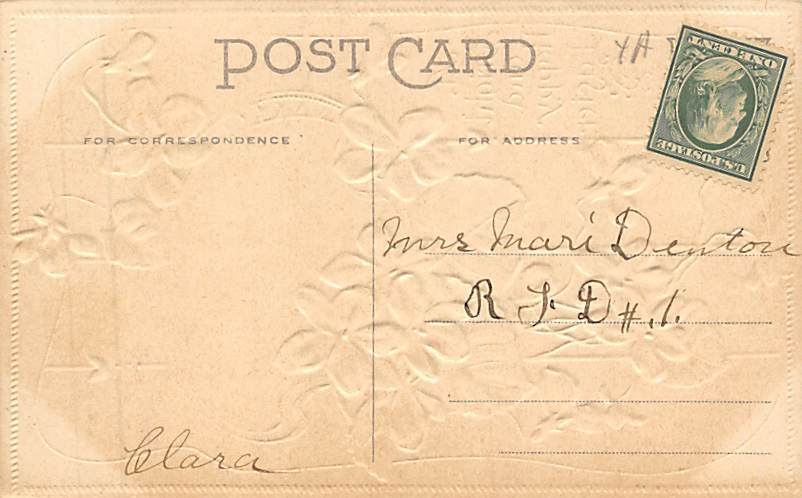 POST CARD
YA
ONE CENT
U.S. POSTAGE
FOR CORRESPONDENCE
FOR ADDRESS
Mrs Mari Denton
R F D #.1.
Clara